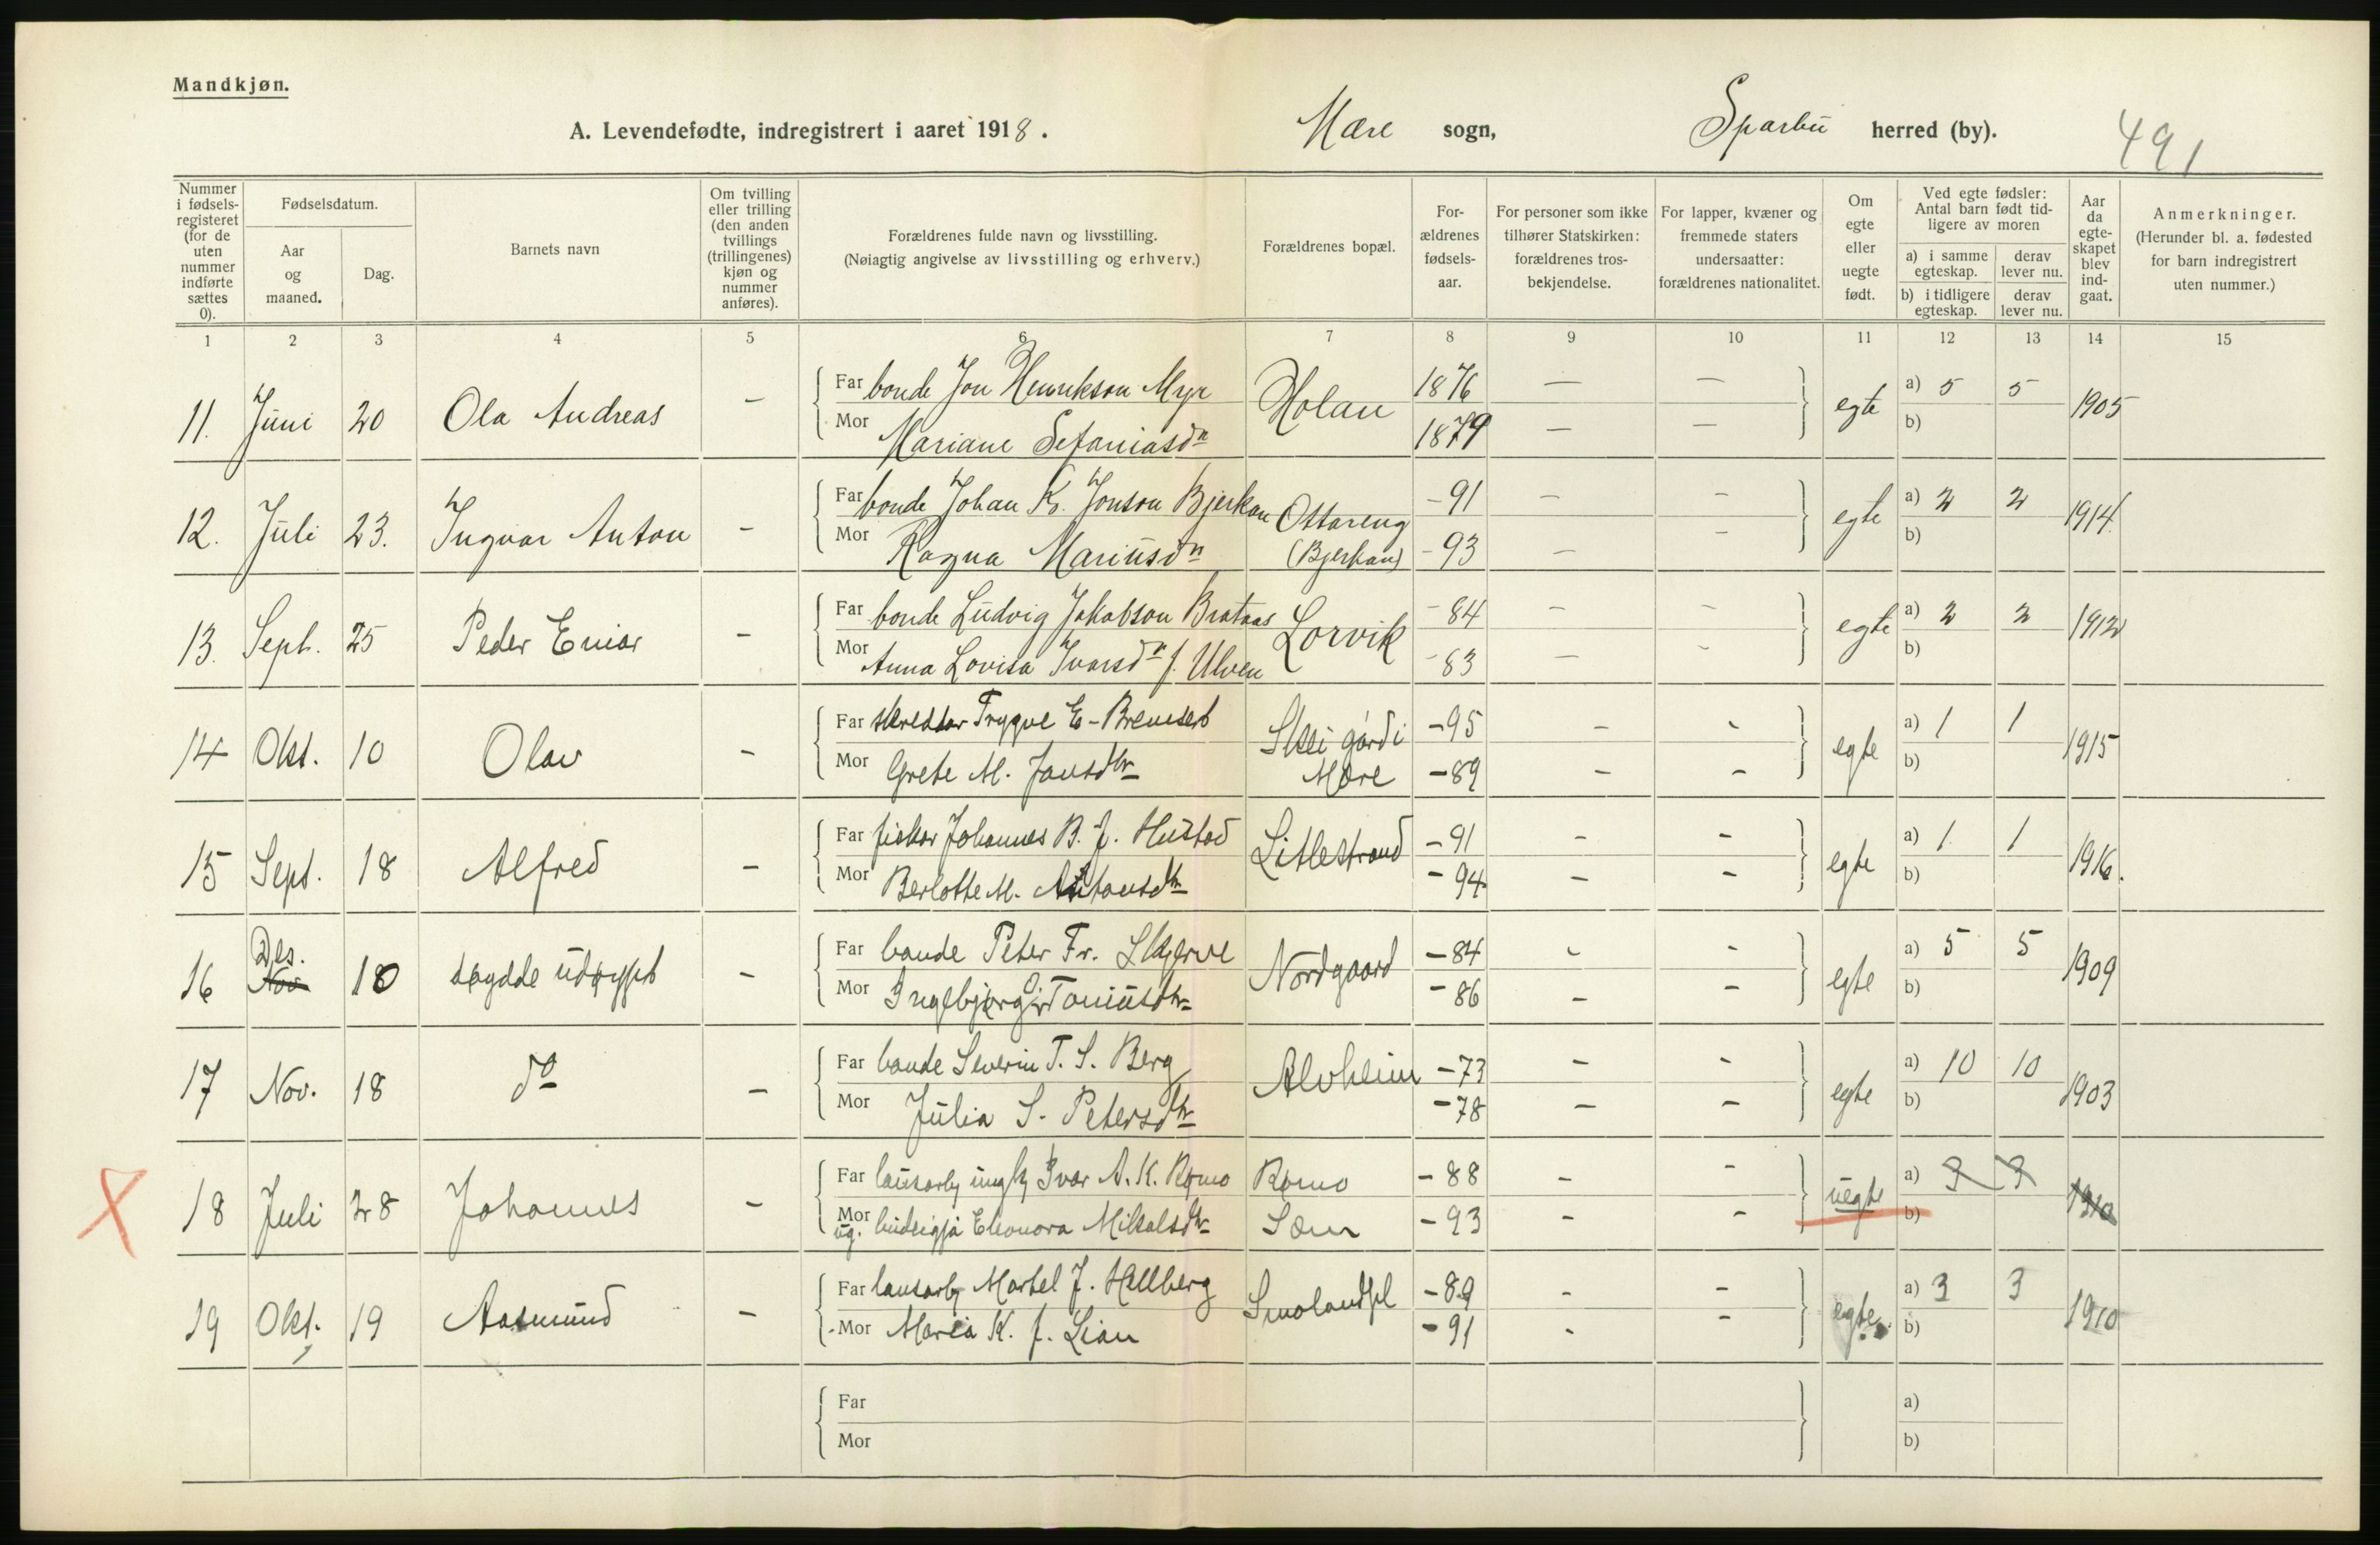 Mandkjøn.
A. Levendefødte, indregistrert i aaret 1918. Mære sogn, Sparbu herred (by). 491
Nummer i fødsels-registeret (for de uten nummer indførte sættes 0).
Fødselsdatum.
Aar og maaned.
Dag.
Barnets navn
Om tvilling eller trilling (den anden tvillings (trillingenes) kjøn og nummer anføres).
Forældrenes fulde navn og livsstilling.
(Nøiagtig angivelse av livsstilling og erhverv.)
Forældrenes bopæl.
For-ældrenes fødsels-aar.
For personer som ikke tilhører Statskirken: forældrenes tros-bekjendelse.
For lapper, kvæner og fremmede staters undersaatter: forældrenes nationalitet.
Om egte eller uegte født.
Ved egte fødsler: Antal barn født tid-ligere av moren
a) i samme egteskap. derav lever nu.
b) i tidligere egteskap. derav lever nu.
Aar da egte-skapet blev ind-gaat.
Anmerkninger.
(Herunder bl. a. fødested for barn indregistrert uten nummer.)
1 2 3 4 5 6 7 8 9 10 11 12 13 14 15
11. Juni 20 Ola Andreas - Far bonde Jon Henrikson Myr Holan 1876 — — egte a) 5 5 1905
Mor Mariane Sefaniasdn 1879 — — b)
12. Juli 23. Ingvar Anton - Far bonde Johan K. Jonson Bjerkan Ottareng -91 — - egte a) 2 2 1914.
Mor Ragna Mariusdn (Bjerkan) -93 — - b)
13. Sept. 25 Peder Einar - Far bonde Ludvig Jakobson Brataas Lorvik -84 - - egte a) 2 2 1912
Mor Anna Lovisa Ivarsdn f. Ulven -83 — - b)
14 Okt. 10 Olav - Far skreddar Tryggve E- Bremseth Skei gård i -95 - - egte a) 1 1 1915
Mor Grete M. Jansdtr Mære -89 - - b)
15 Sept. 18 Alfred - Far fiskar Johannes B. J. Hustad Litlestrand -91 - - egte a) 1 1 1916.
Mor Berlotte M. Antonsdtr -94 - - b)
16 Des. Nov 18 - Far bonde Peter Fr. Skjerve Nordgaard -84 - - egte a) 5 5 1909
Mor Ingebjørg Toniusdtr -86 - - b)
17 Nov. 18 do - Far bonde Severin T. S. Berg Alvheim -73 - - egte a) 10 10 1903
Mor Julia S. Petersdtr -78 - - b)
X 18 Juli 28 Johannes - Far lausarb. ungk. Ivar A. K. Rømo Rømo -88 - - uegte a) 3 3 1910
Mor ug. budeigja Eleonora Mikalsdtr Sem -93 - - b)
19 Okt. 19 Aasmund - Far lausarb. Martel J. Hellberg Smolandpl -89 - - egte a) 3 3 1910
Mor Maria K. f. Lian -91 - - b)
Far a)
Mor b)